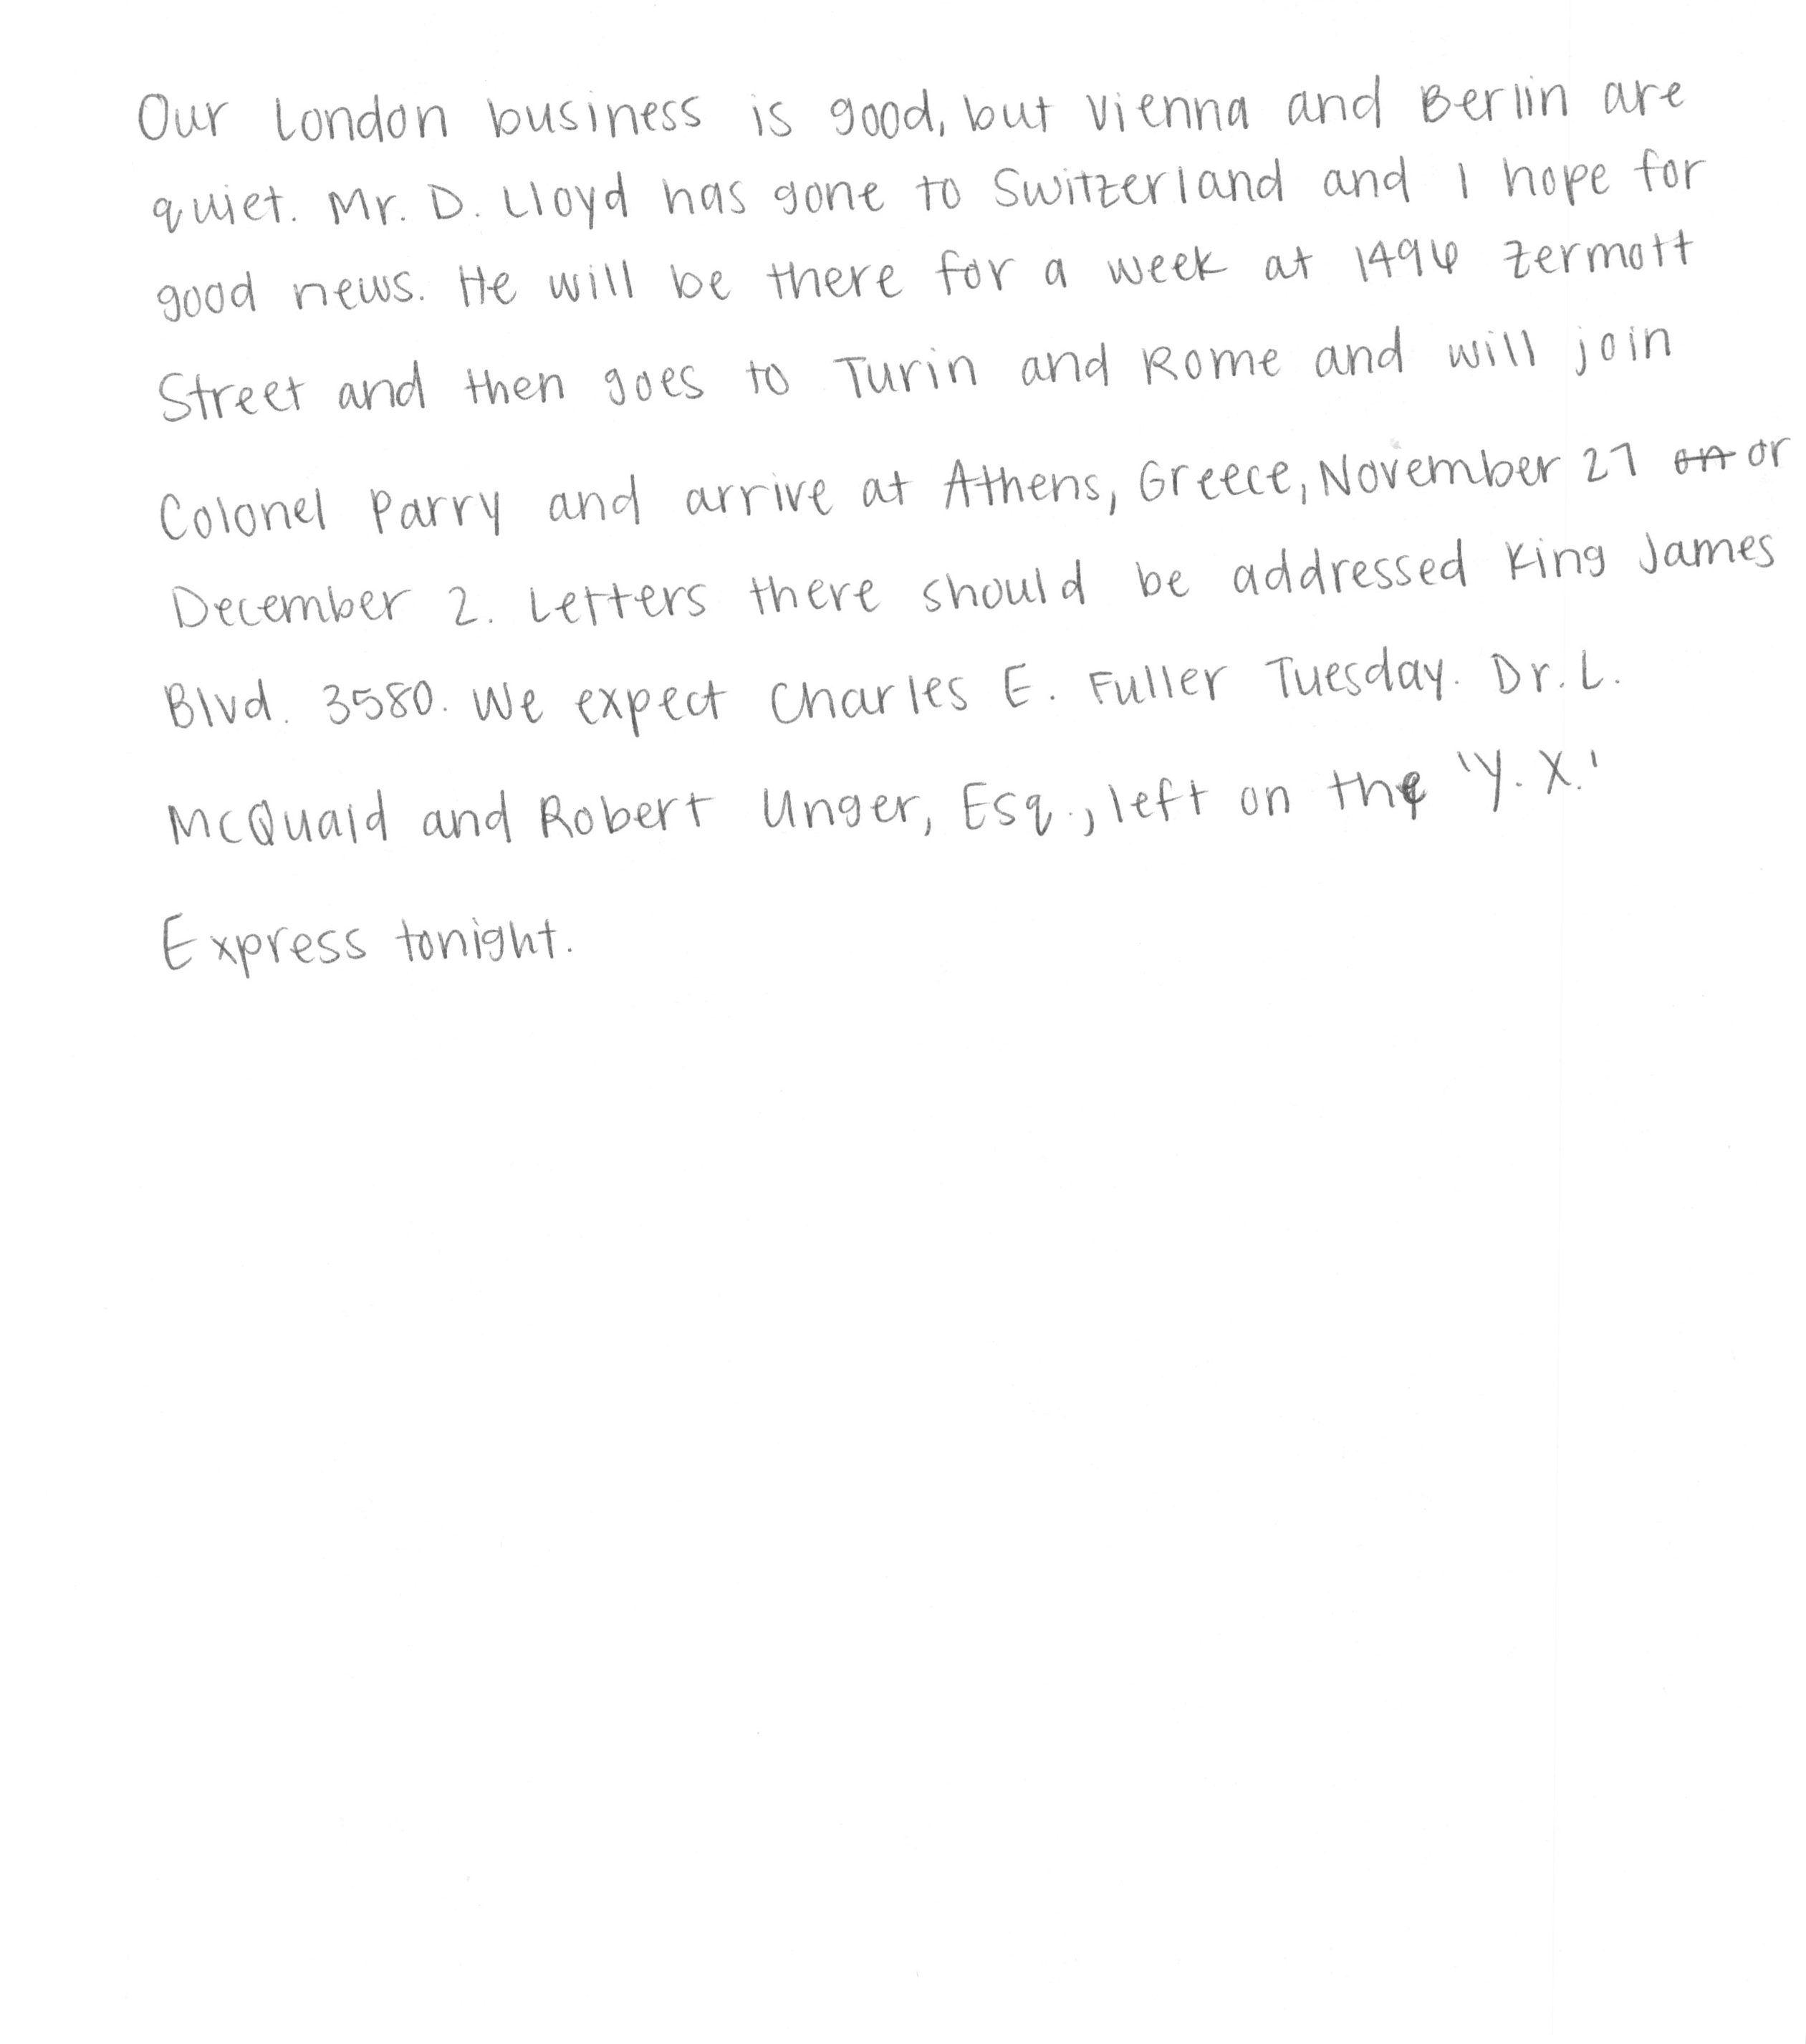 Our London business is good, but Vienna and Berlin are
quiet. Mr. D. Lloyd has gone to Switzerland and I hope for
good news. He will be there for a week at 1496 Zermott
Street and then goes to Turin and Rome and will join
Colonel Parry and arrive at Athens, Greece, November 27 on or
December 2. Letters there should be addressed King James
Blvd. 3580. We expect Charles E. Fuller Tuesday. Dr. L.
McQuaid and Robert Unger, Esq., left on the 'Y.X.'
Express tonight.